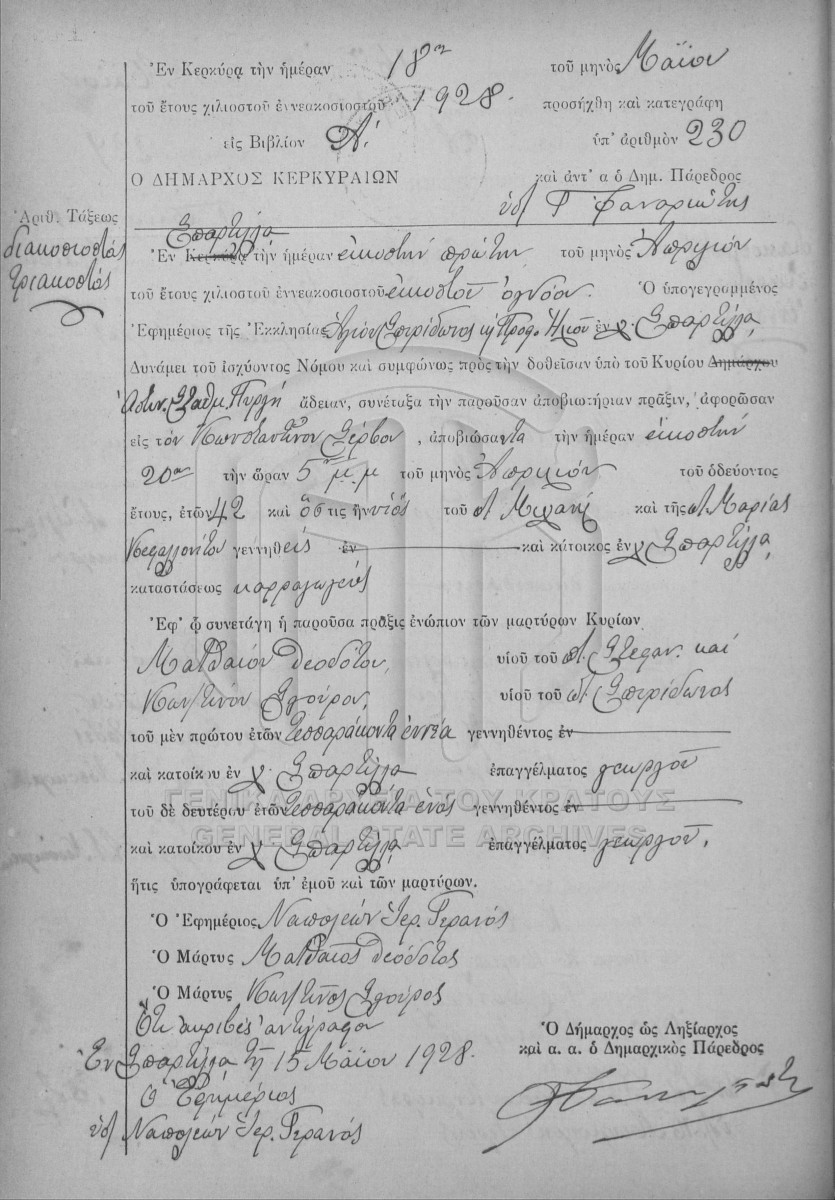 Ἐν Κερκύρᾳ τὴν ἡμέραν 18ην τοῦ μηνὸς Μαΐου
τοῦ ἔτους χιλιοστοῦ ἐννεακοσιοστοῦ 1928. προσήχθη καὶ κατεγράφη
εἰς Βιβλίον Α΄. ὑπ' ἀριθμὸν 230
Ο ΔΗΜΑΡΧΟΣ ΚΕΡΚΥΡΑΙΩΝ καὶ ἀντ' α ὁ Δημ. Πάρεδρος
Ἀριθ. Τάξεως
διακοσιοστός
τριακοστός
ὑπ/ Γ Φαναριώτης
Σπαρτύλλα
Ἐν Κερκύρᾳ τὴν ἡμέραν εἰκοστήν πρώτην τοῦ μηνὸς Ἀπριλίου
τοῦ ἔτους χιλιοστοῦ ἐννεακοσιοστοῦ εἰκοστοῦ ὀγδόου. Ὁ ὑπογεγραμμένος
Ἐφημέριος τῆς Ἐκκλησίας Ἁγίου Σπυρίδωνος κ Προφ. Ἠλιού ἐν χ. Σπαρτύλλα,
Δυνάμει τοῦ ἰσχύοντος Νόμου καὶ συμφώνως πρὸς τὴν δοθεῖσαν ὑπὸ τοῦ Κυρίου Δημάρχου
Ἀστυν. Σταθμ. Πυργί ἄδειαν, συνέταξα τὴν παροῦσαν ἀποβιωτήριαν πρᾶξιν, ἀφορῶσαν
εἰς τὸν Κωνσταντῖνον Σέρβον, ἀποβιώσαντα τὴν ἡμέραν εἰκοστήν
20ην τὴν ὥραν 5 μ.μ τοῦ μηνὸς Ἀπριλίου τοῦ ὁδεύοντος
ἔτους, ἐτῶν 42 καὶ ὅστις ἦν υἱὸς τοῦ Μιχαήλ καὶ τῆς Μαρίας
γεννηθείς ἐν καὶ κάτοικος ἐν χ Σπαρτύλλα,
καταστάσεως καρραγωγεύς
Ἐφ' ᾧ συνετάγη ἡ παροῦσα πρᾶξις ἐνώπιον τῶν μαρτύρων Κυρίων
Ματθαίου Θεοδότου, υἱοῦ τοῦ Στεφαν. καί
Κωνστίνου Σγούρου, υἱοῦ τοῦ Σπυρίδωνος
τοῦ μὲν πρώτου ἐτῶν τεσσαράκοντα ἐννέα γεννηθέντος ἐν
καὶ κατοίκου ἐν χ. Σπαρτύλλα ἐπαγγέλματος γεωργοῦ
ΓΕΝΙΚΑ ΑΡΧΕΙΑ ΤΟΥ ΚΡΑΤΟΥΣ
τοῦ δὲ δευτέρου ἐτῶν τεσσαράκοντα ἑνός γεννηθέντος ἐν
GENERAL STATE ARCHIVES
καὶ κατοίκου ἐν χ Σπαρτύλλα, ἐπαγγέλματος γεωργοῦ,
ἥτις ὑπογράφεται ὑπ' ἐμοῦ καὶ τῶν μαρτύρων.
Ὁ Ἐφημέριος Ναπολεών Ἱερ. Γερανός
Ὁ Μάρτυς Ματθαῖος Θεοδότος
Ὁ Μάρτυς Κωνστῖνος Σγούρος
Ὅτι ἀκριβές ἀντίγραφον
Ἐν Σπαρτύλλα τῇ 15 Μαΐου 1928.
Ὁ Ἐφημέριος
ὑπ/ Ναπολεών Ἱερ. Γερανός
Ὁ Δήμαρχος ὡς Ληξίαρχος
καὶ α. α. ὁ Δημαρχικὸς Πάρεδρος